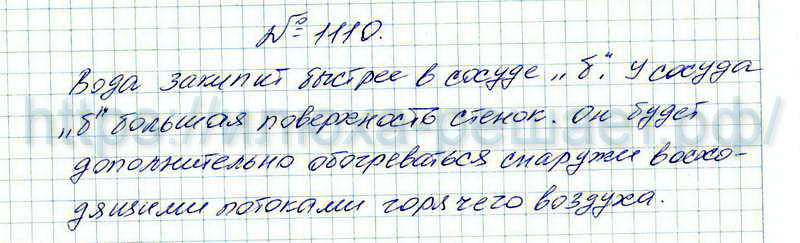 № 1110.
Вода закипит быстрее в сосуде „б“. У сосуда
„б“ большая поверхность стенок. Он будет
дополнительно обогреваться снаружи восхо-
дящими потоками горячего воздуха.